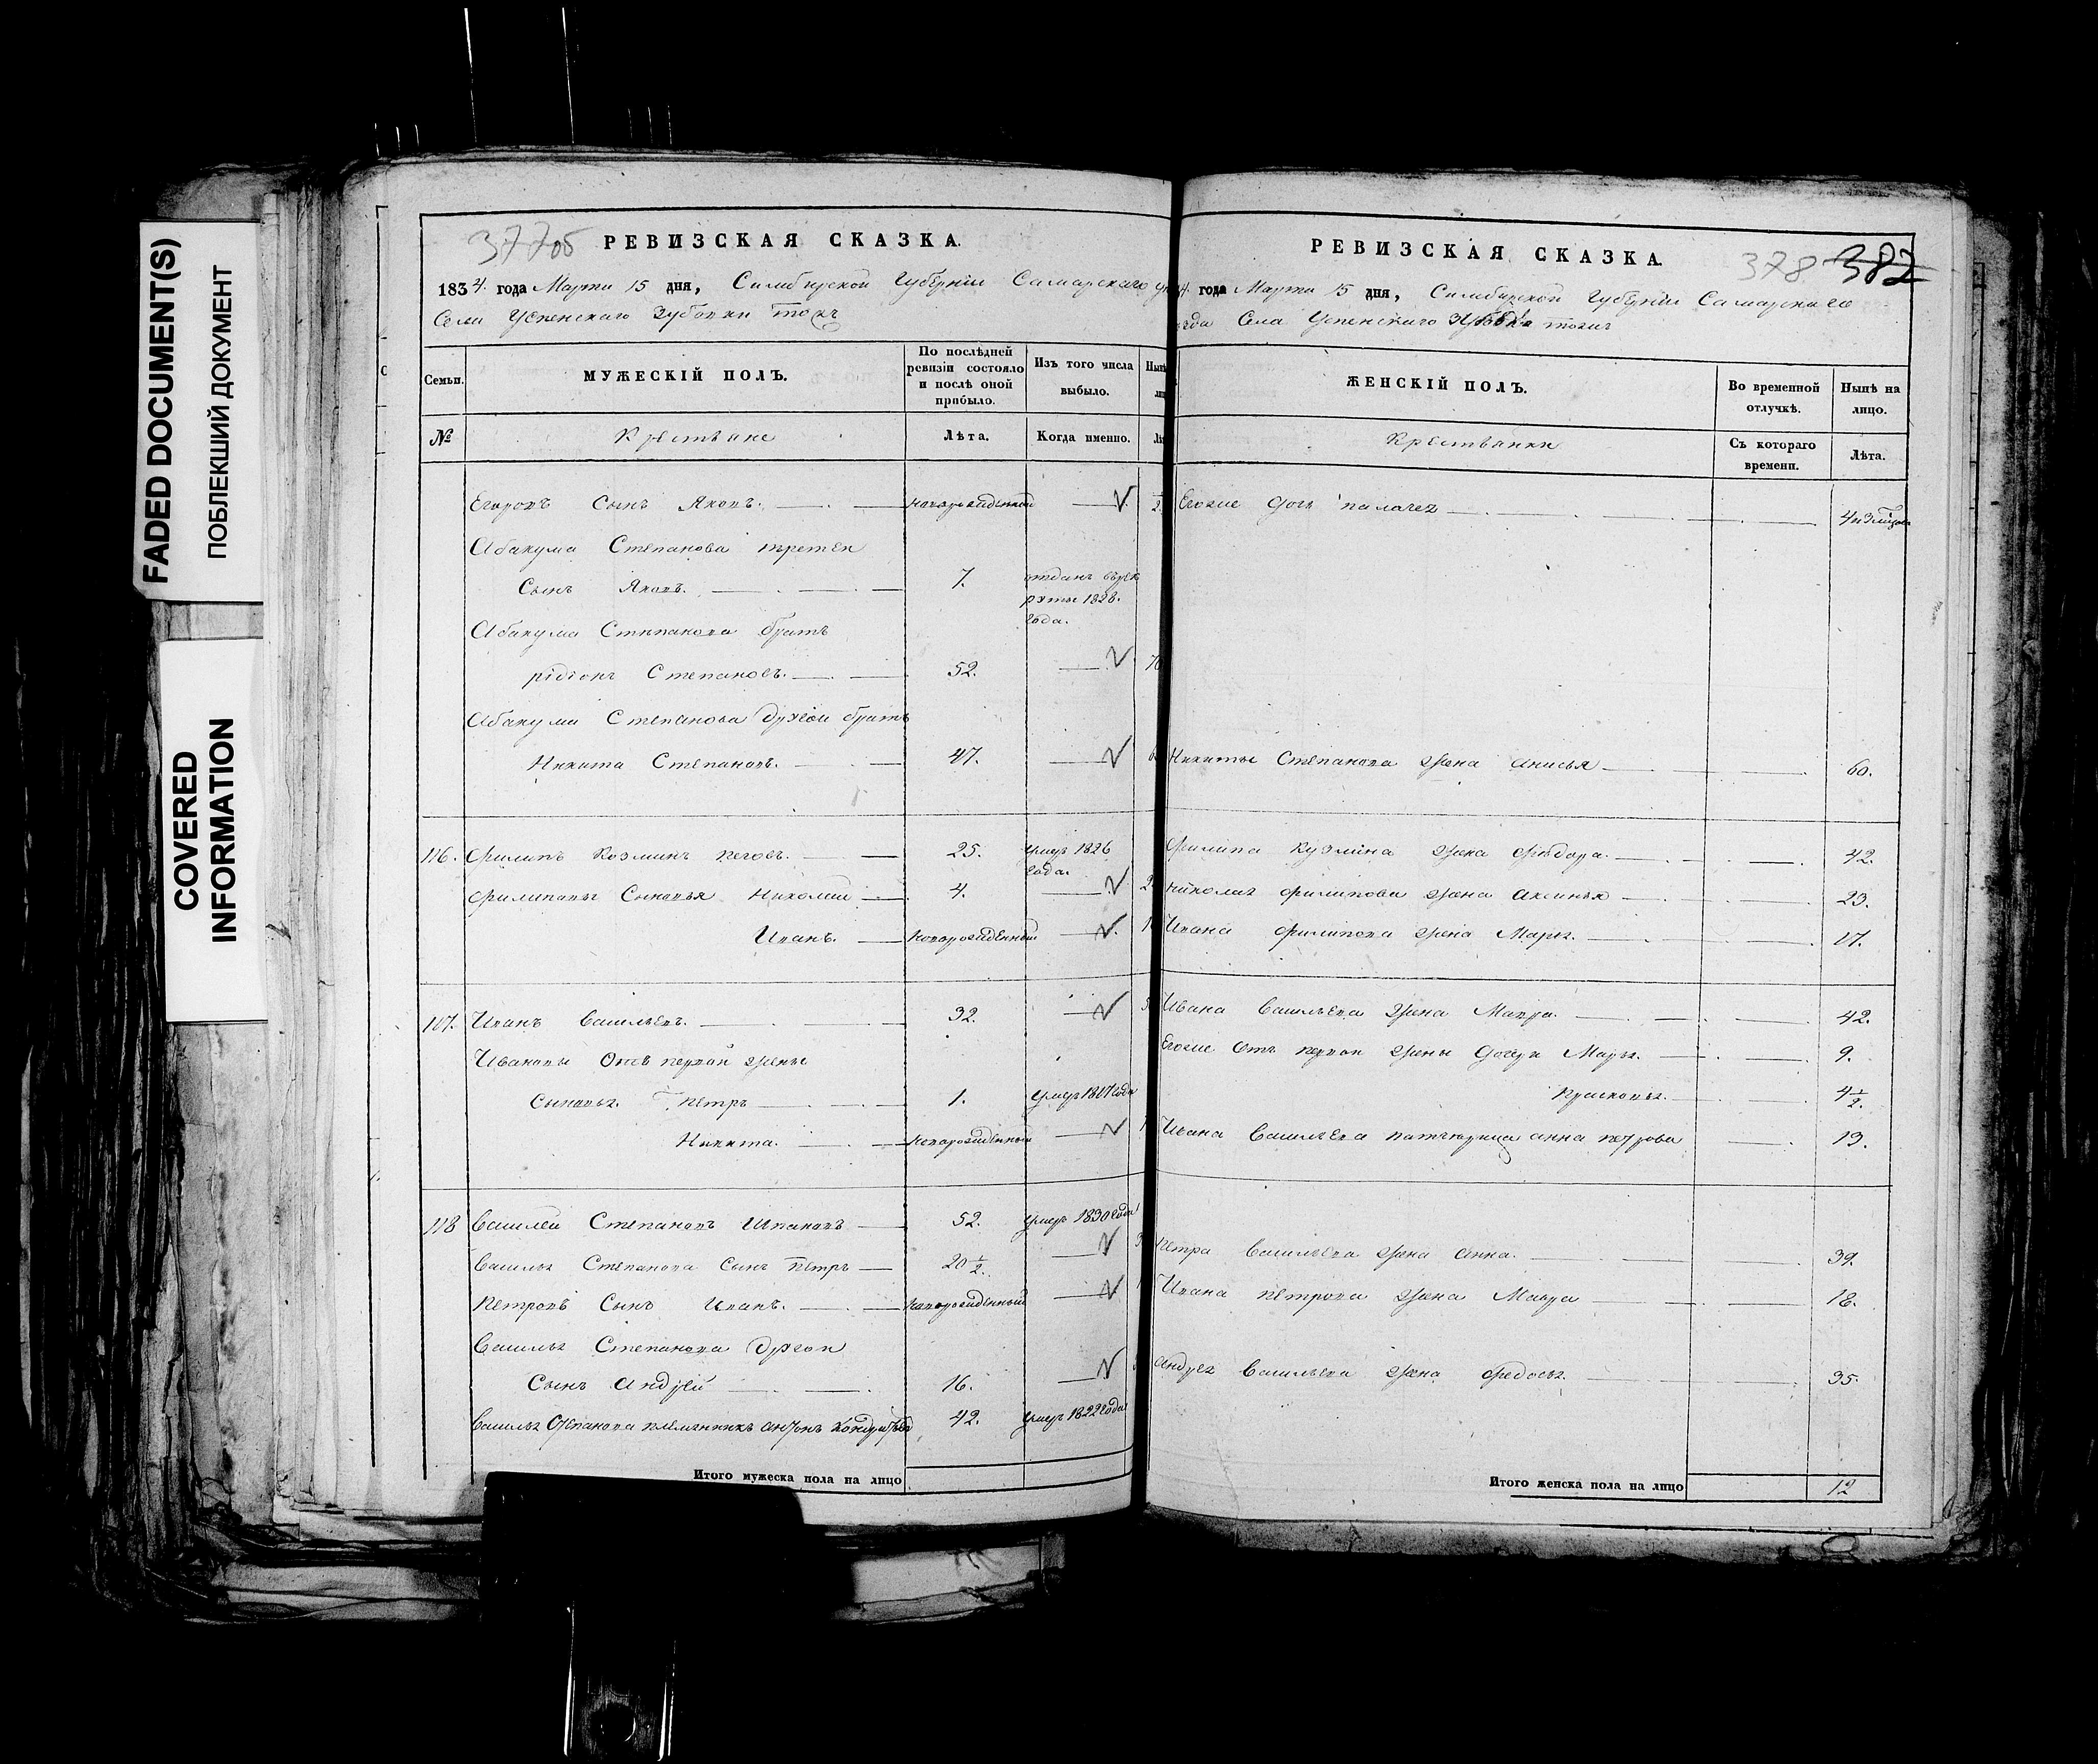 FADED DOCUMENT(S)
ПОБЛЕКШИЙ ДОКУМЕНТ
COVERED
INFORMATION
377об
РЕВИЗСКАЯ СКАЗКА.
1834 года Марта 15 дня, Симбирской Губернии Самарского
Села Успенского Зубовки тожъ
Семьи.
МУЖЕСКІЙ ПОЛЪ.
По послѣдней ревизіи состояло и послѣ оной прибыло.
Изъ того числа выбыло.
№
Крестьяне
Лѣта.
Когда именно.
Егоровъ Сынъ Яковъ. новорожденный
Абакума Степанова третей
Сынъ Яковъ. 7. отданъ въ рек
руты 1828.
года.
Абакума Степанова братъ
рідіонъ Степановъ. 52.
Абакума Степанова другой братъ
Никита Степановъ. 47.
116. Филипъ Козминъ 25. умеръ 1826
года.
Филиповы Сыновья Николай 4.
Иванъ. Новорожденный
117. Иванъ Васильевъ. 32.
Ивановы Отъ первой жены
Сыновья. Петръ 1. умеръ 18 года
Никита. Новорожденный
118 Василей Степановъ 52. умеръ 1830 года
Василья Степанова Сынъ Петръ 20 1/2.
Петровъ Сынъ Иванъ. Новорожденный
Василья Степанова другой
Сынъ Андрей 16.
Василья Степанова племянникъ Антонъ 42. умеръ 1822 года
Итого мужеска пола на лицо
РЕВИЗСКАЯ СКАЗКА.
378 382
4. года Марта 15 дня, Симбирской Губерніи Самарскаго
Села Успенскаго Зубовка тожъ
ЖЕНСКІЙ ПОЛЪ.
Во временной отлучкѣ.
Нынѣ на лицо.
Крестьянки
Съ котораго времени.
Лѣта.
Егоже дочь 4 и 3
Никиты Степанова жена анисья 60.
Филипа Кузмина жена Фѣдора. 42.
Николая Филипова жена Аксинья 23.
Ивана Филипова жена Марья. 17.
Ивана Васильева жена Мавра. 42.
Егоже Отъ первой жены дочери Марья. 9.
Прасковья. 4 1/2.
Ивана Васильева анна петрова 13.
Петра Васильева жена Анна. 39.
Ивана петрова жена Мавра 18.
Андрея Васильева жена Федосья. 35.
Итого женска пола на лицо 12